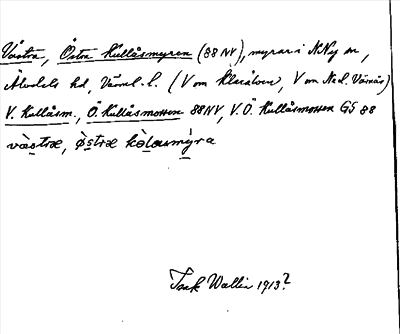 Västra, Östra Kullåsmyren (88 NV), myrar i N.Ny sn,
Älvdals hd, Värml. l. (V om Klarälven, V om Ned. Värnäs)
V. Kullåsm., Ö. Kullåsmossen 88NV, V. Ö. Kullåsmossen GS 88
væstræ, østræ kòlåsmýra
Isak Wallin 1913?